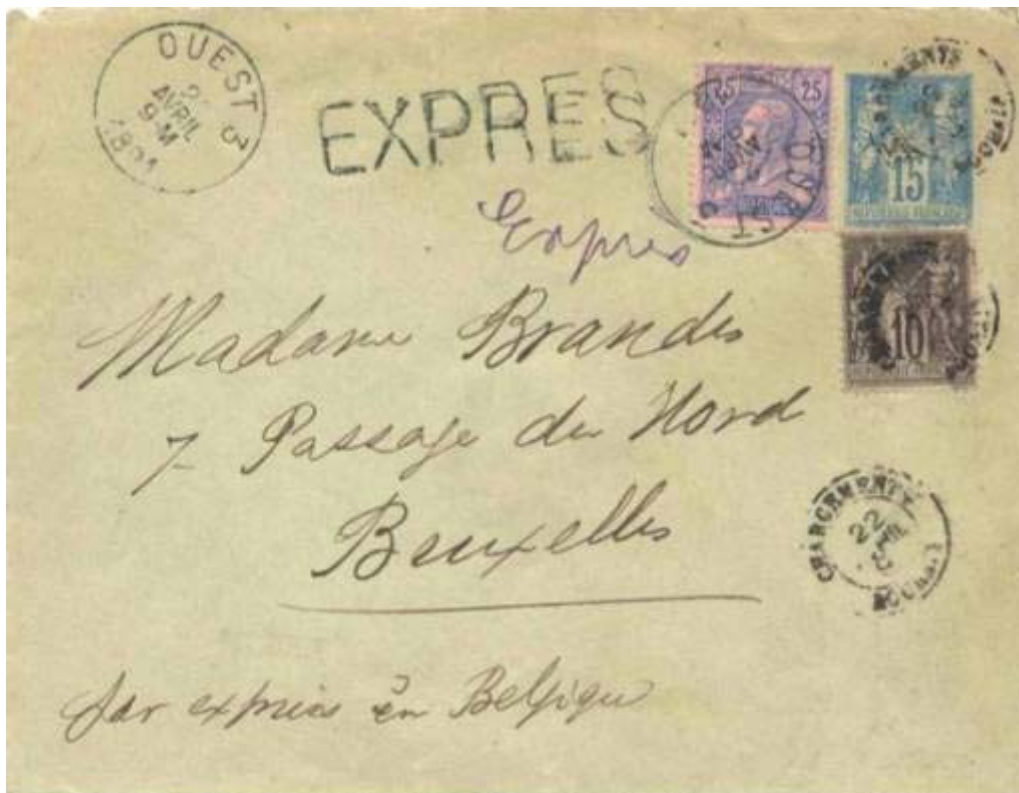 OUEST 3
AVRIL
9-M
EXPRES
25 25
15
REPUBLIQUE FRANÇAISE
10
Expres
Madame Brandes
7 Passage du Nord
Bruxelles
CHARGEMENTS
22
par exprès en Belgique